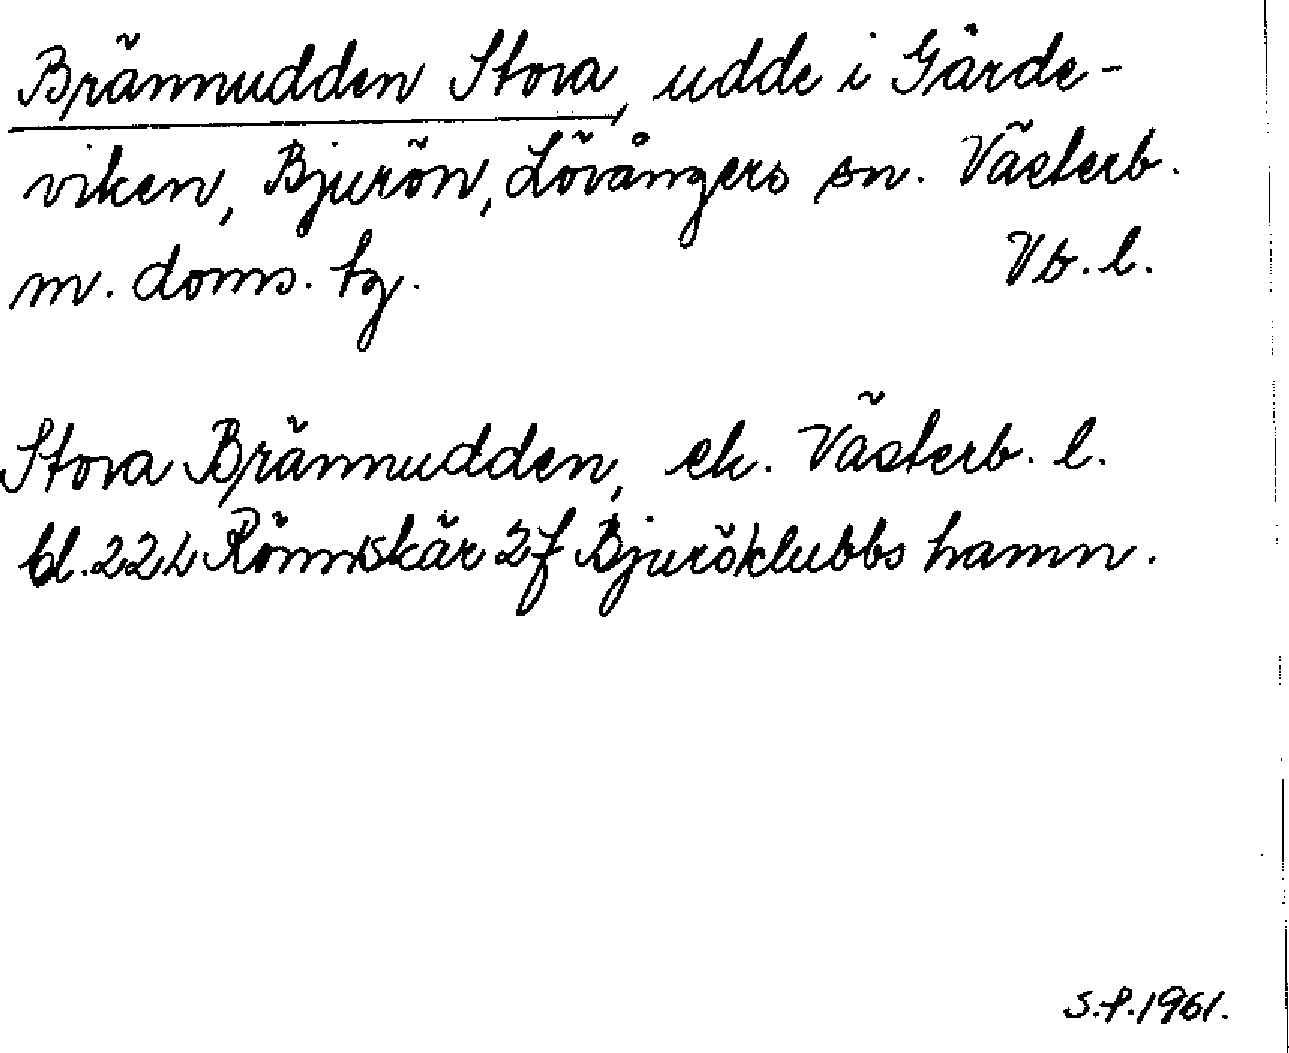 Brännudden Stora, udde i Gårde-
viken, Bjurön, Lövångers sn. Västerb.
m. doms. tg. Vb. l.
Stora Brännudden, ek. Västerb. l.
bl. 22L Rönnskär 2f Bjuröklubbs hamn.
S.P.1961.